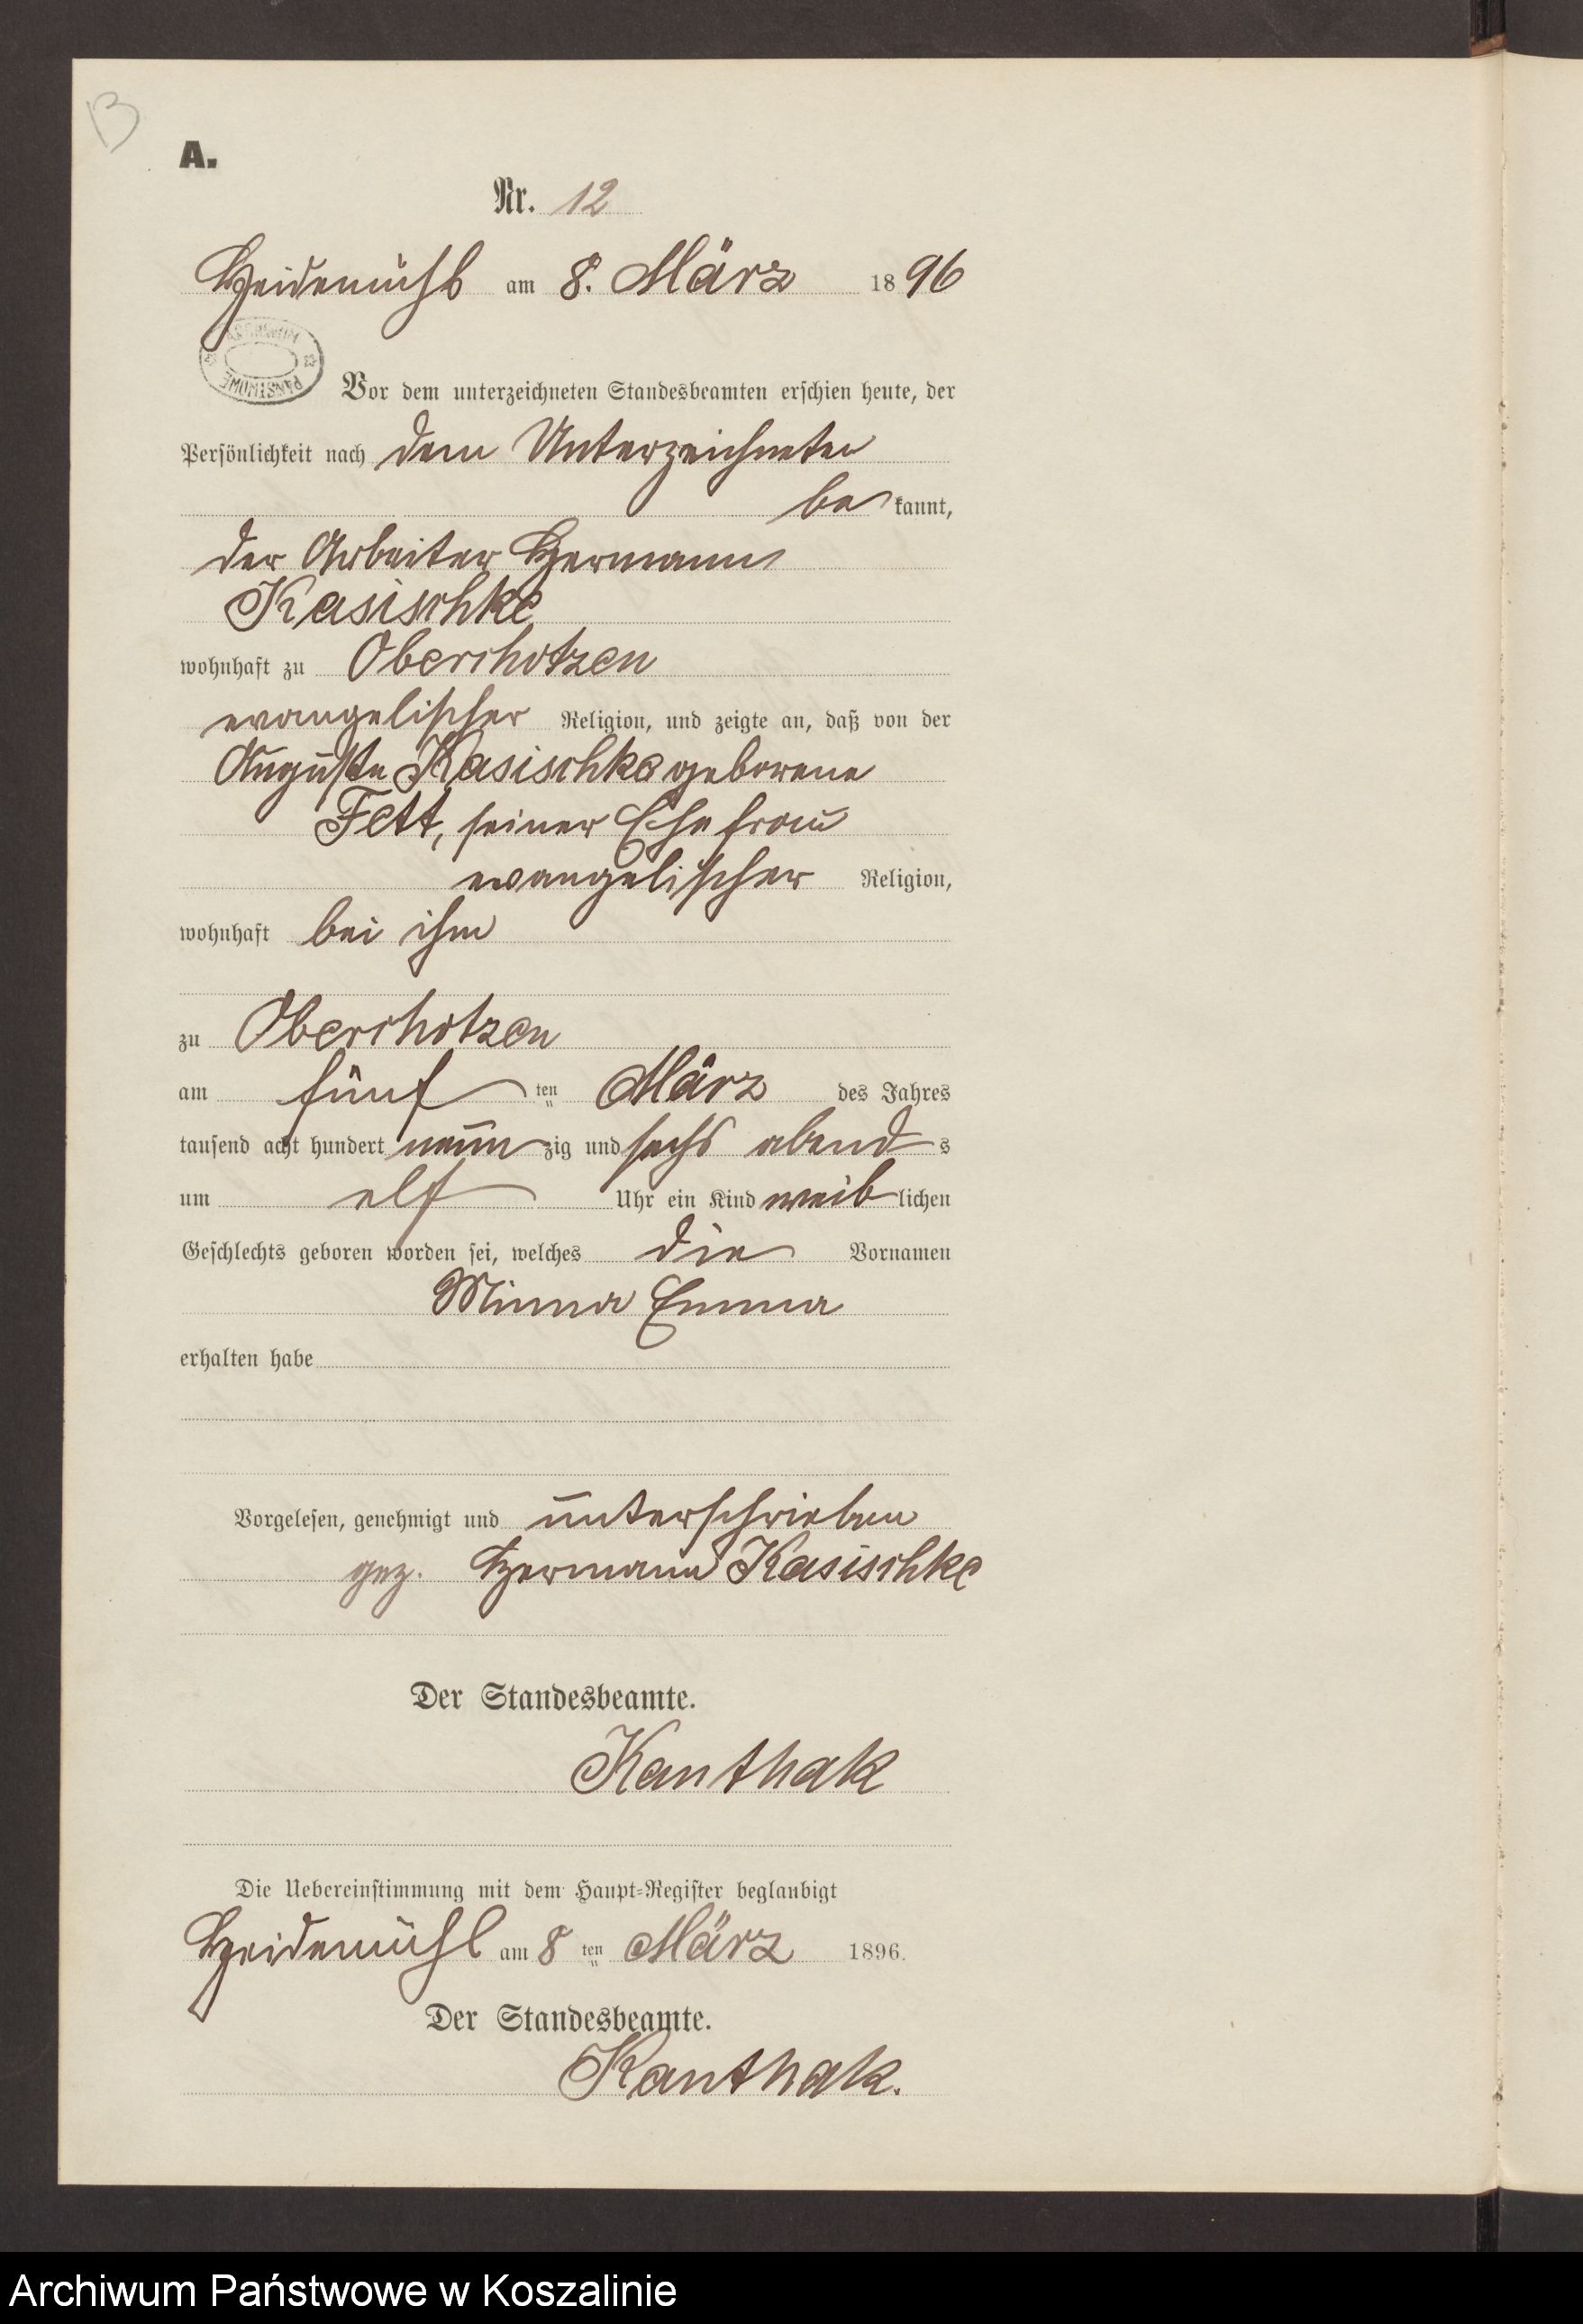 B
A.
Nr. 12
Heidemühl am 8. März 1896
ARCHIWUM PAŃSTWOWE
Vor dem unterzeichneten Standesbeamten erschien heute, der
Persönlichkeit nach dem Unterzeichneten
be kannt,
der Arbeiter Hermann
Kasischke
wohnhaft zu Oberchotzen
evangelischer Religion, und zeigte an, daß von der
Auguste Kasischke geborene
Fett, seiner Ehefrau
evangelischer Religion,
wohnhaft bei ihm
zu Oberchotzen
am fünf ten März des Jahres
tausend acht hundert neun zig und sechs abend s
um elf Uhr ein Kind weib lichen
Geschlechts geboren worden sei, welches die Vornamen
Minna Emma
erhalten habe
Vorgelesen, genehmigt und unterschrieben
gez. Hermann Kasischke
Der Standesbeamte.
Kanthak
Die Uebereinstimmung mit dem Haupt-Register beglaubigt
Heidemühl am 8 ten März 1896.
Der Standesbeamte.
Kanthak.
Archiwum Państwowe w Koszalinie